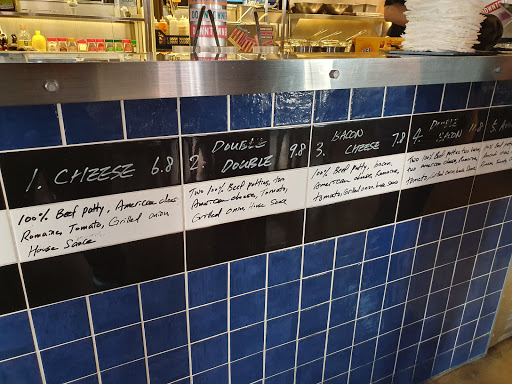 1. CHEESE 6.8
100% Beef patty, American chese
Romaine, Tomato, Grilled onion
House Sauce
2. DOUBLE DOUBLE 9.8
Two 100% Beef patties, two
American cheese, Tomato,
Grilled onion, House Sauce
3. BACON CHEESE 7.8
100% Beef patty, bacon,
American cheese, Romaine,
Tomato, Grilled onion, House sauce
4. DOUBLE BACON 11.8
Two 100% Beef patties, two bacon,
two American cheese, Romaine,
Tomato, Grilled onion, House Sauce
5.